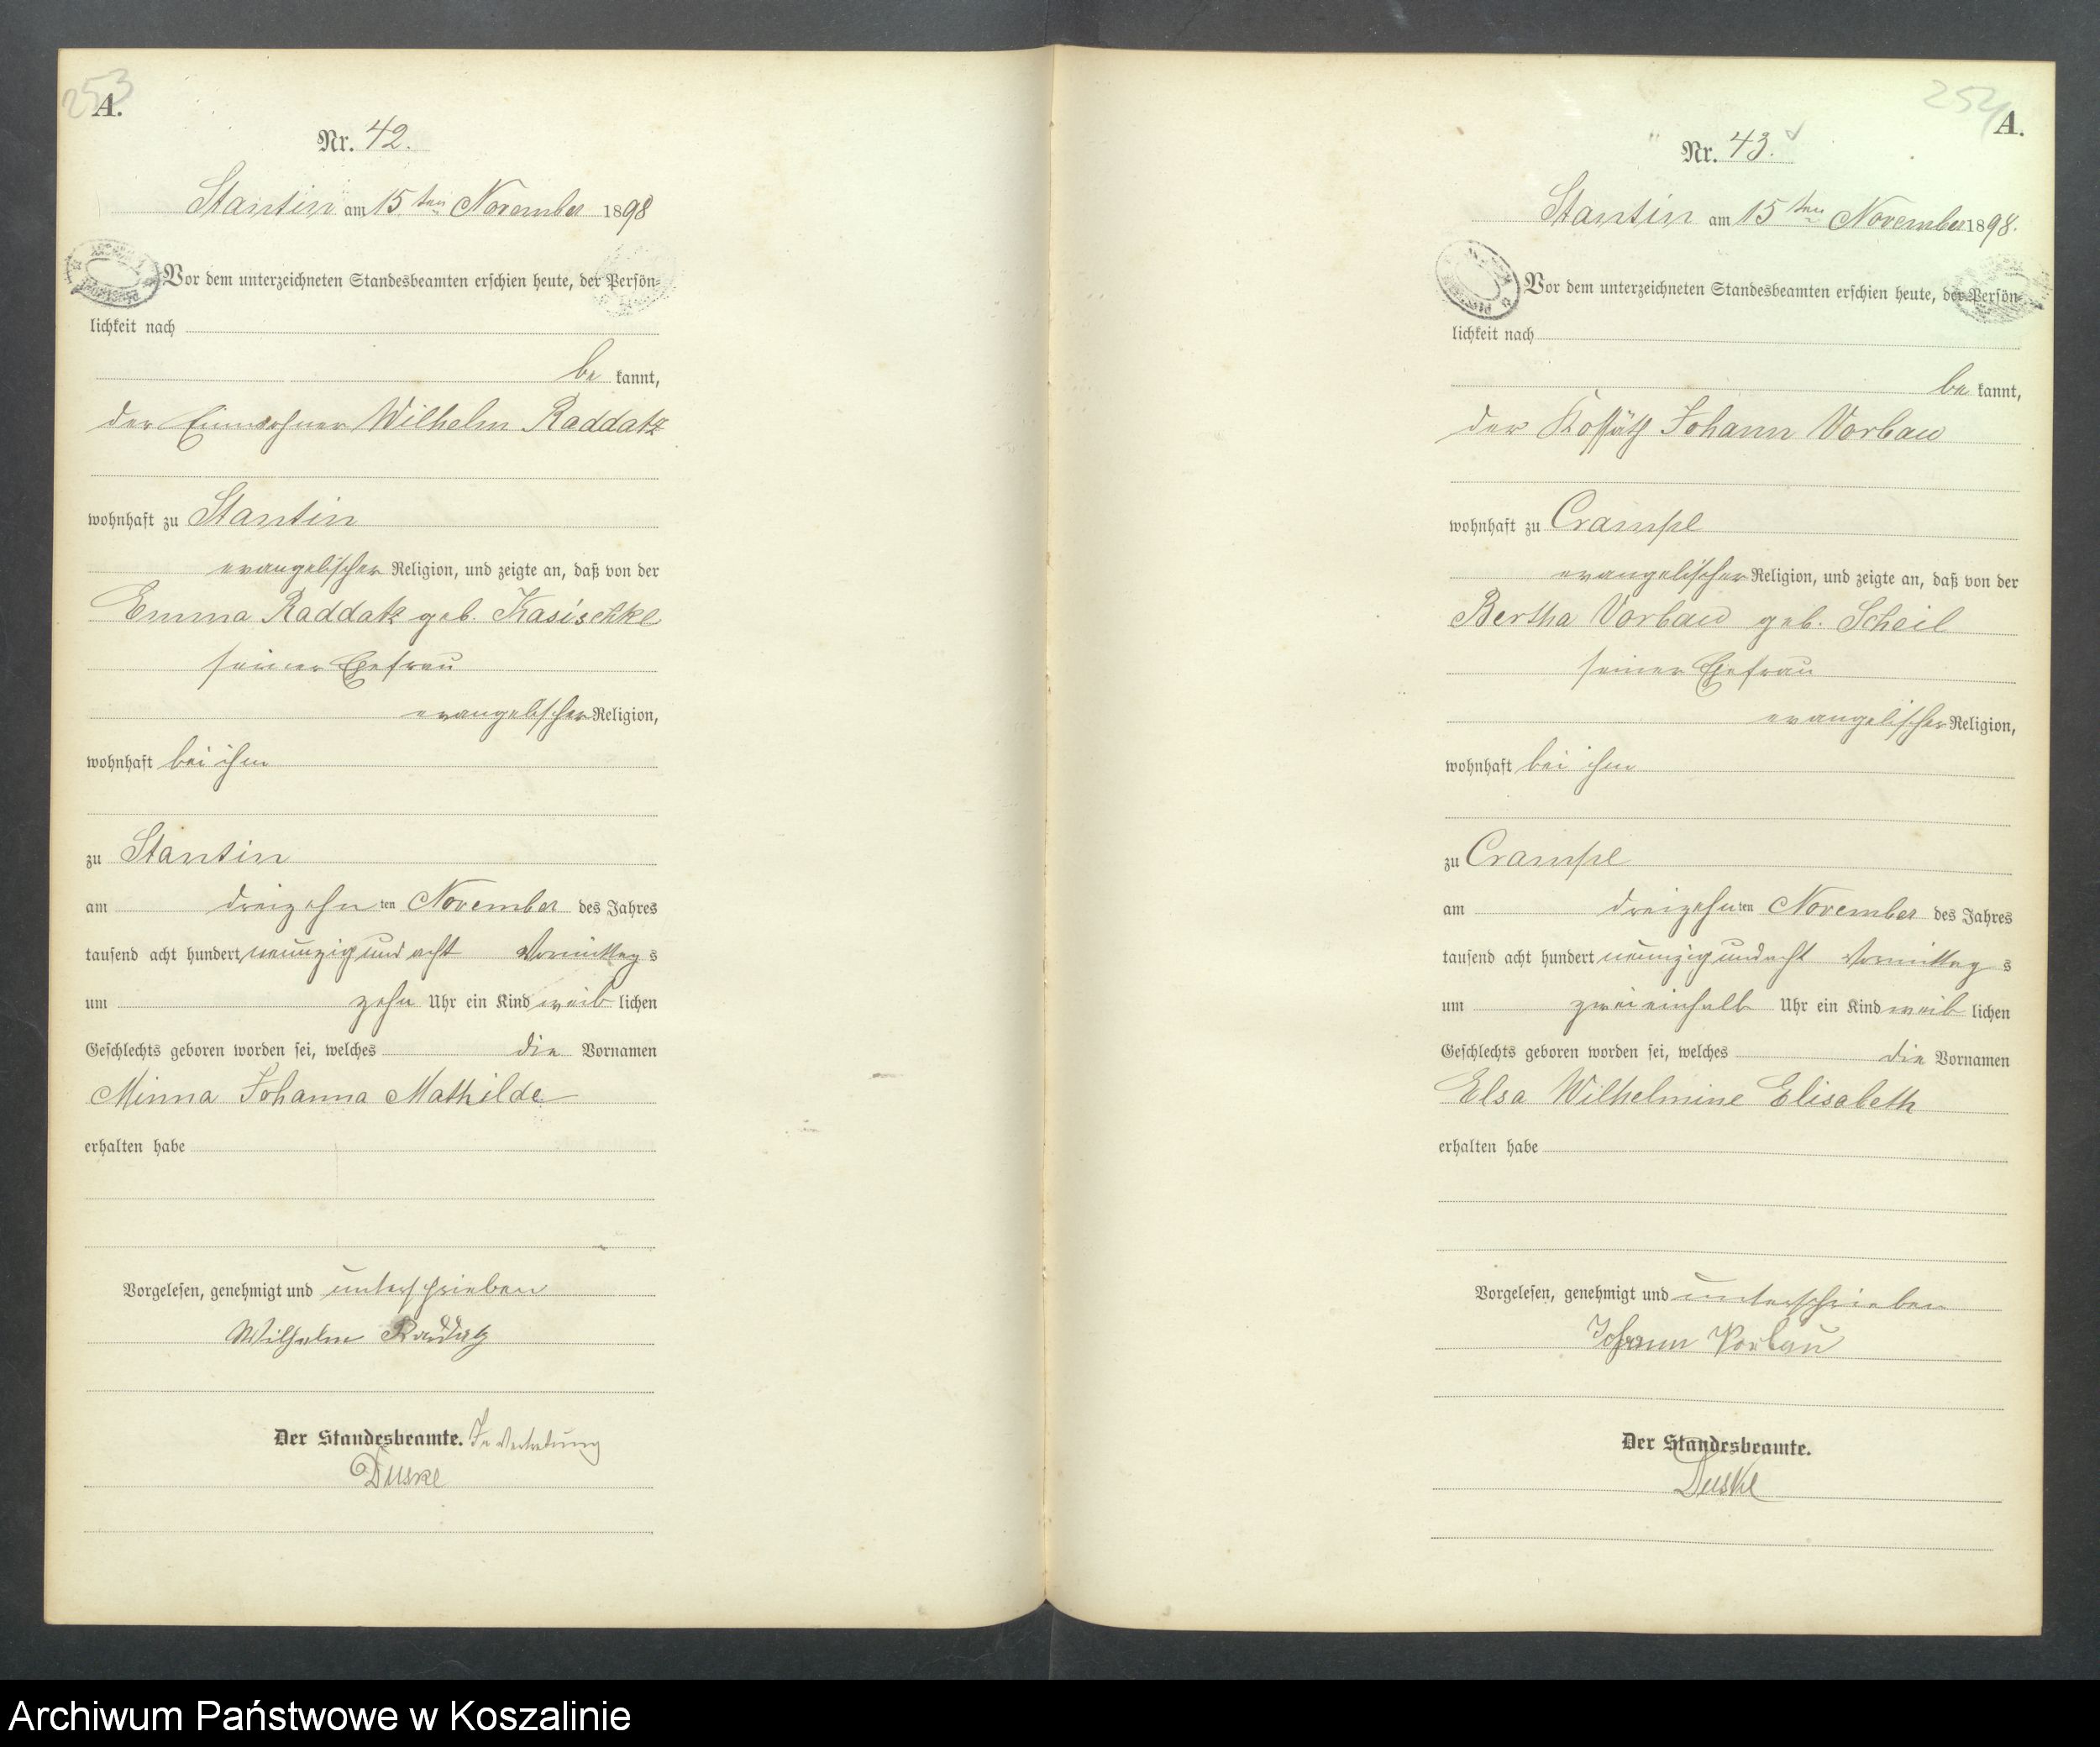 253
A.
Nr. 42.
Stantin am 15ten November 1898
Vor dem unterzeichneten Standesbeamten erschien heute, der Persön-
lichkeit nach
be kannt,
der Einwohner Wilhelm Raddatz
wohnhaft zu Stantin
evangelischer Religion, und zeigte an, daß von der
Emma Raddatz geb. Kasischke
seiner Ehefrau
evangelischer Religion,
wohnhaft bei ihm
zu Stantin
am dreizehn ten November des Jahres
tausend acht hundert neunzig und acht Vormittag s
um zehn Uhr ein Kind weib lichen
Geschlechts geboren worden sei, welches die Vornamen
Minna Johanna Mathilde
erhalten habe
Vorgelesen, genehmigt und unterschrieben
Wilhelm Raddatz
Der Standesbeamte. In Vertretung
Duske
254
A.
Nr. 43.
Stantin am 15ten November 1898.
Vor dem unterzeichneten Standesbeamten erschien heute, der Persön-
lichkeit nach
be kannt,
der Kossäth Johann Vorbau
wohnhaft zu Crampe
evangelischer Religion, und zeigte an, daß von der
Bertha Vorbau geb. Scheil
seiner Ehefrau
evangelischer Religion,
wohnhaft bei ihm
zu Crampe
am dreizehn ten November des Jahres
tausend acht hundert neunzig und acht Vormittag s
um zweieinhalb Uhr ein Kind weib lichen
Geschlechts geboren worden sei, welches die Vornamen
Elsa Wilhelmine Elisabeth
erhalten habe
Vorgelesen, genehmigt und unterschrieben
Johann Vorbau
Der Standesbeamte.
Duske
Archiwum Państwowe w Koszalinie